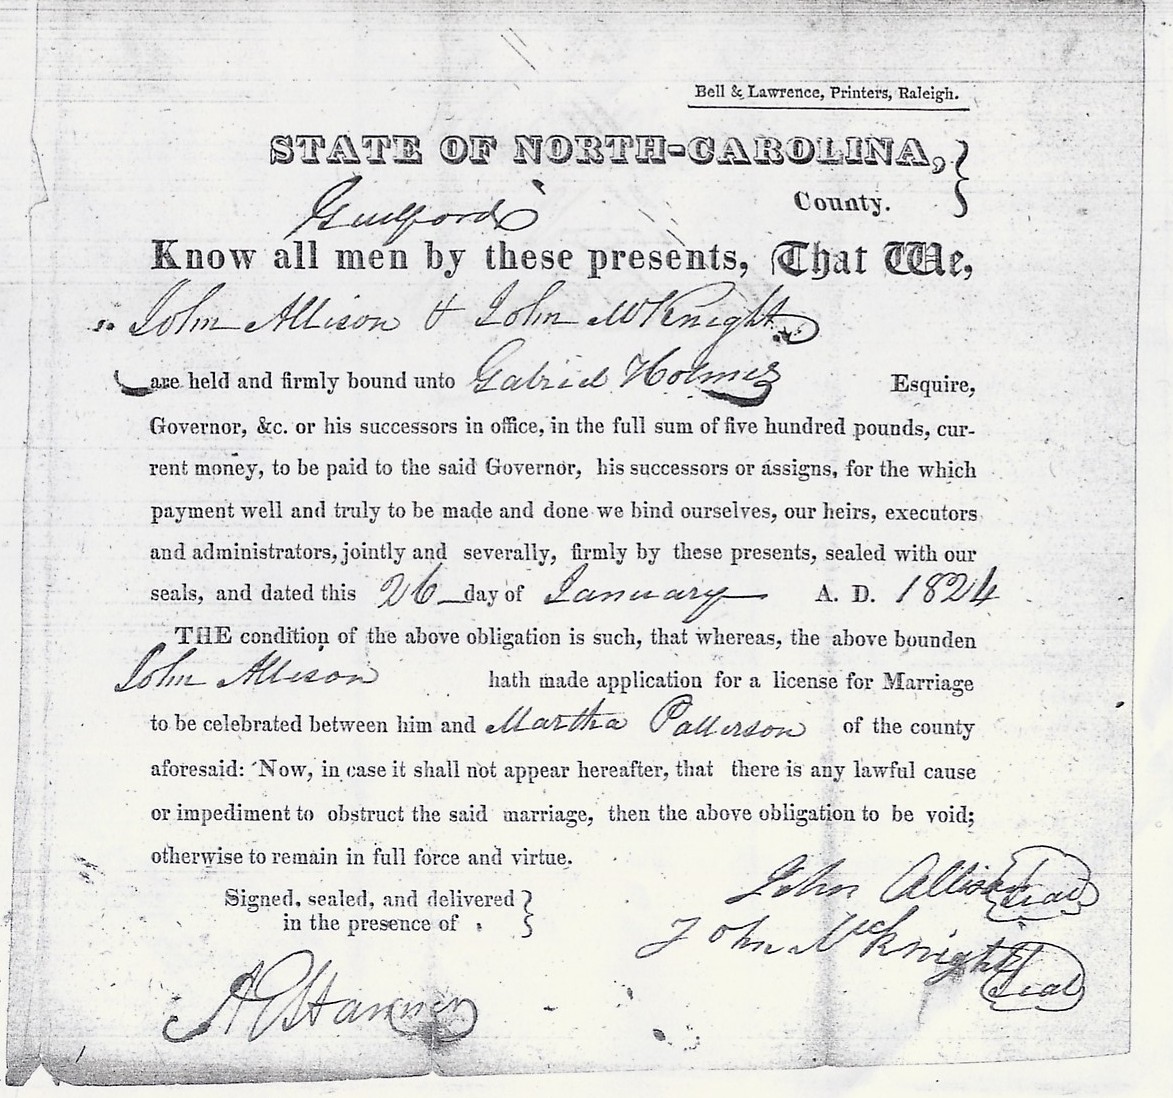 Bell & Lawrence, Printers, Raleigh.
STATE OF NORTH-CAROLINA,
County.
Guilford
Know all men by these presents, That We,
John Allison & John McKnight
are held and firmly bound unto Gabriel Holmes Esquire,
Governor, &c. or his successors in office, in the full sum of five hundred pounds, cur-
rent money, to be paid to the said Governor, his successors or assigns, for the which
payment well and truly to be made and done we bind ourselves, our heirs, executors
and administrators, jointly and severally, firmly by these presents, sealed with our
seals, and dated this 26 day of January A. D. 1824
THE condition of the above obligation is such, that whereas, the above bounden
John Allison hath made application for a license for Marriage
to be celebrated between him and Martha Patterson of the county
aforesaid: Now, in case it shall not appear hereafter, that there is any lawful cause
or impediment to obstruct the said marriage, then the above obligation to be void;
otherwise to remain in full force and virtue.
Signed, sealed, and delivered
in the presence of
John Allison Seal
John McKnight Seal